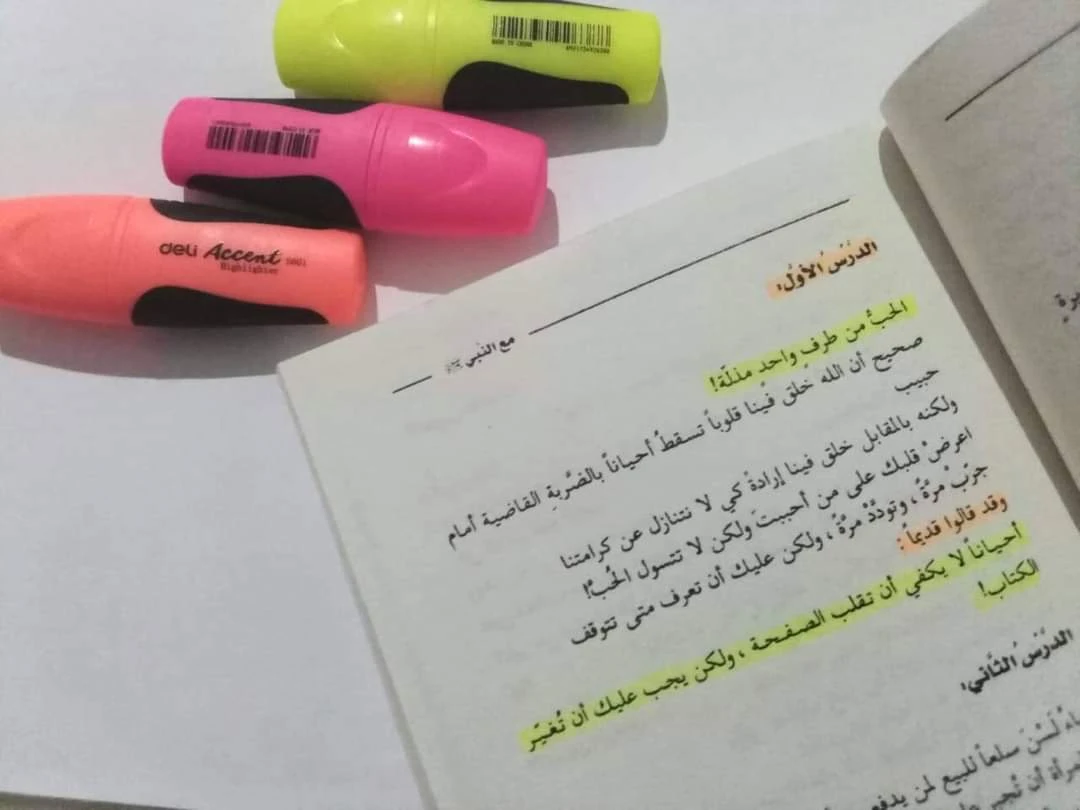 MADE IN CHINA
deli Accent
Highlighter
مع النَّبي ﷺ
الدَّرْسُ الأوَّل:
الحبُّ من طرف واحد مذلّة!
صحيح أن الله خلق فينا قلوباً تسقطُ أحياناً بالضَّربةِ القاضية أمام
حبيب
ولكنه بالمقابل خلق فينا إرادةً كي لا نتنازل عن كرامتنا
اعرضْ قلبك على من أحببتَ ولكن لا تتسول الحُبَّ!
جرّبْ مرّةً، وتودّدْ مرّةً، ولكن عليك أن تعرف متى تتوقف
وقد قالوا قديماً:
أحياناً لا يكفي أن تقلب الصفحة، ولكن يجب عليك أن تُغيّر
الكتاب!
الدَّرْسُ الثَّاني:
لَسْنَ سلعاً للبيع لمن يدفع